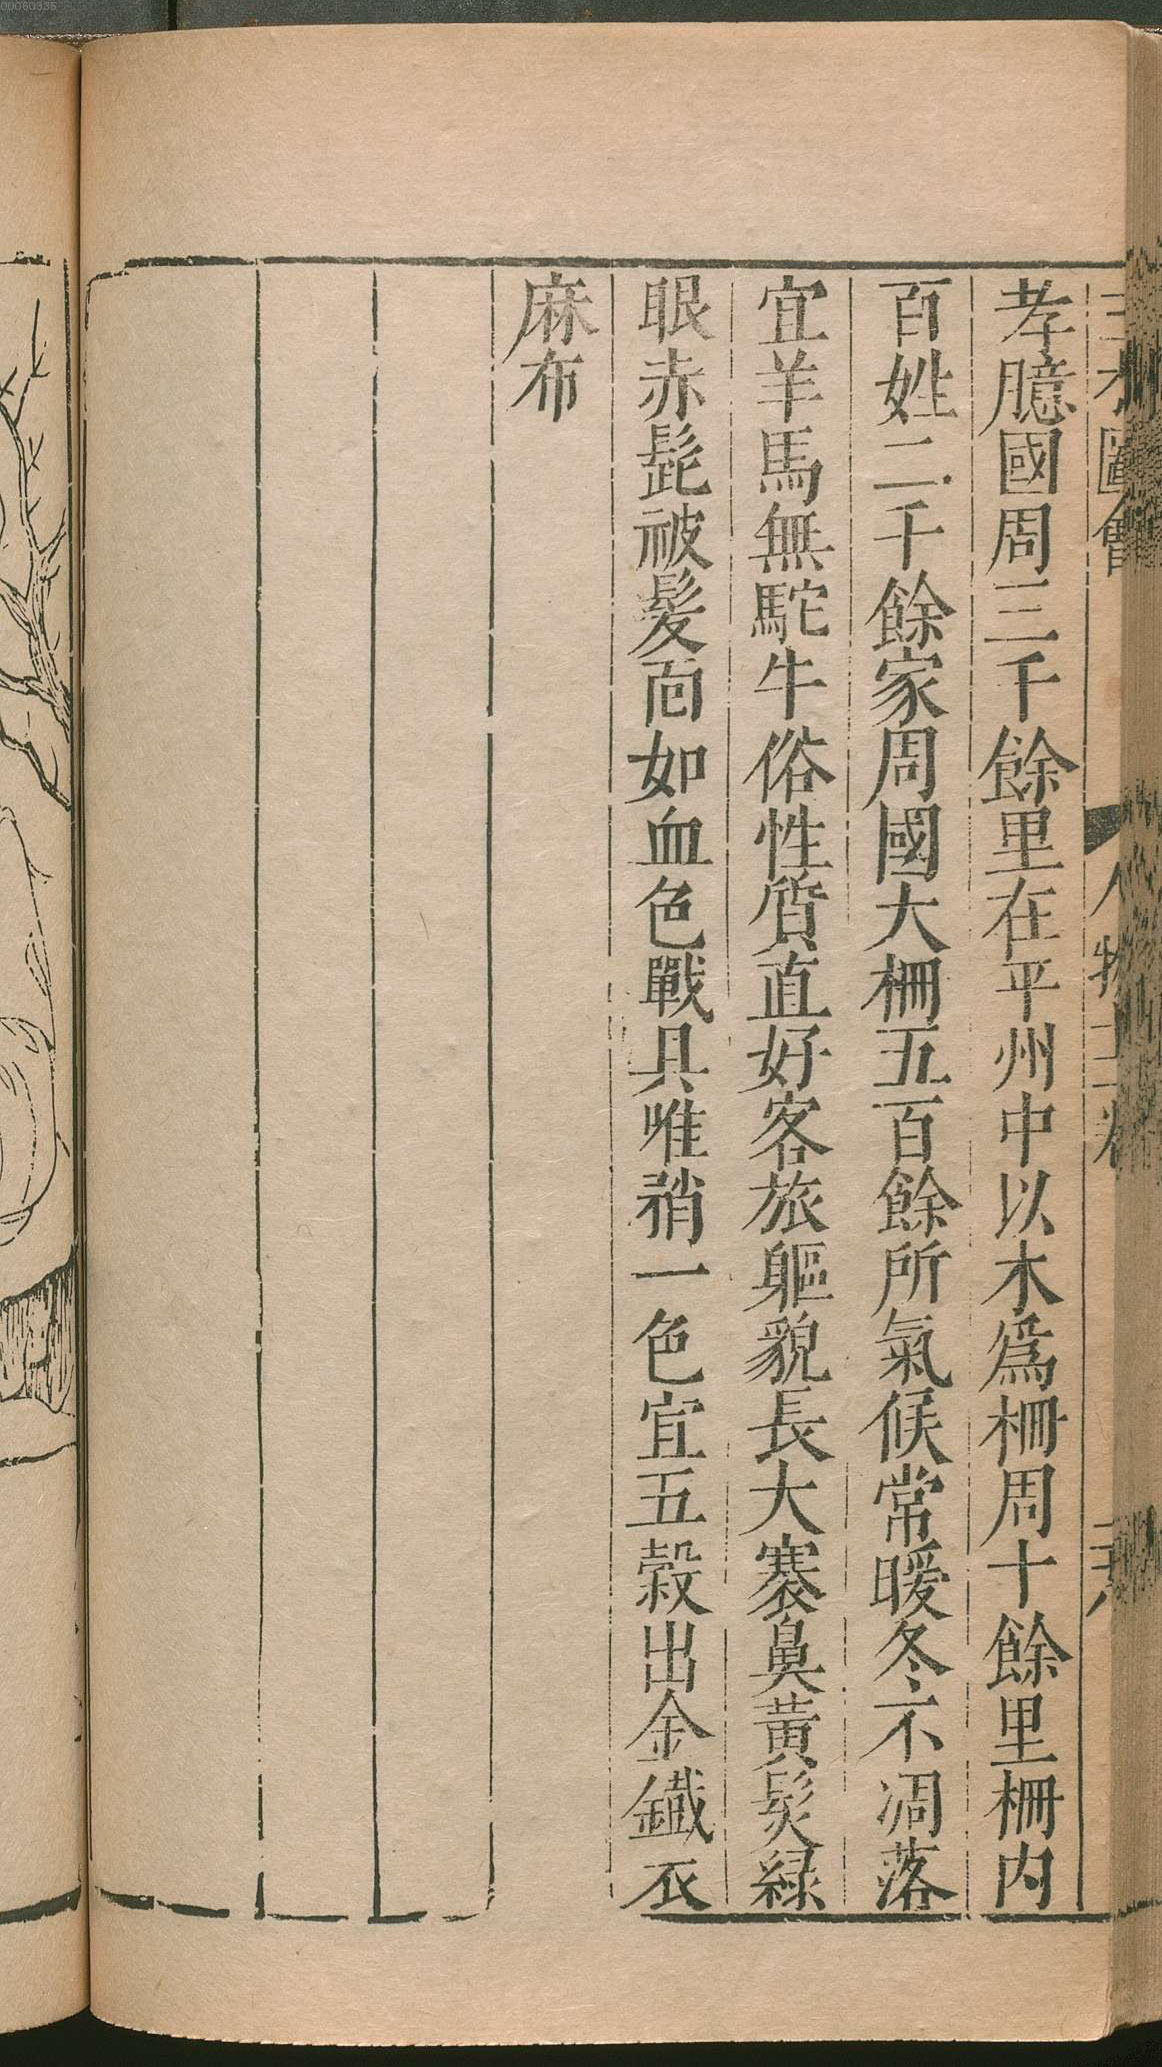 孝臆國周三千餘里在平州中以木爲柵周十餘里柵内
百姓二千餘家周國大柵五百餘所氣候常暖冬不凋落
宜羊馬無駝牛俗性質直好客旅軀貌長大褰鼻黃髮緑
眼赤髭被髮面如血色戰具唯矟一色宜五穀出金鐵衣
麻布
00060335